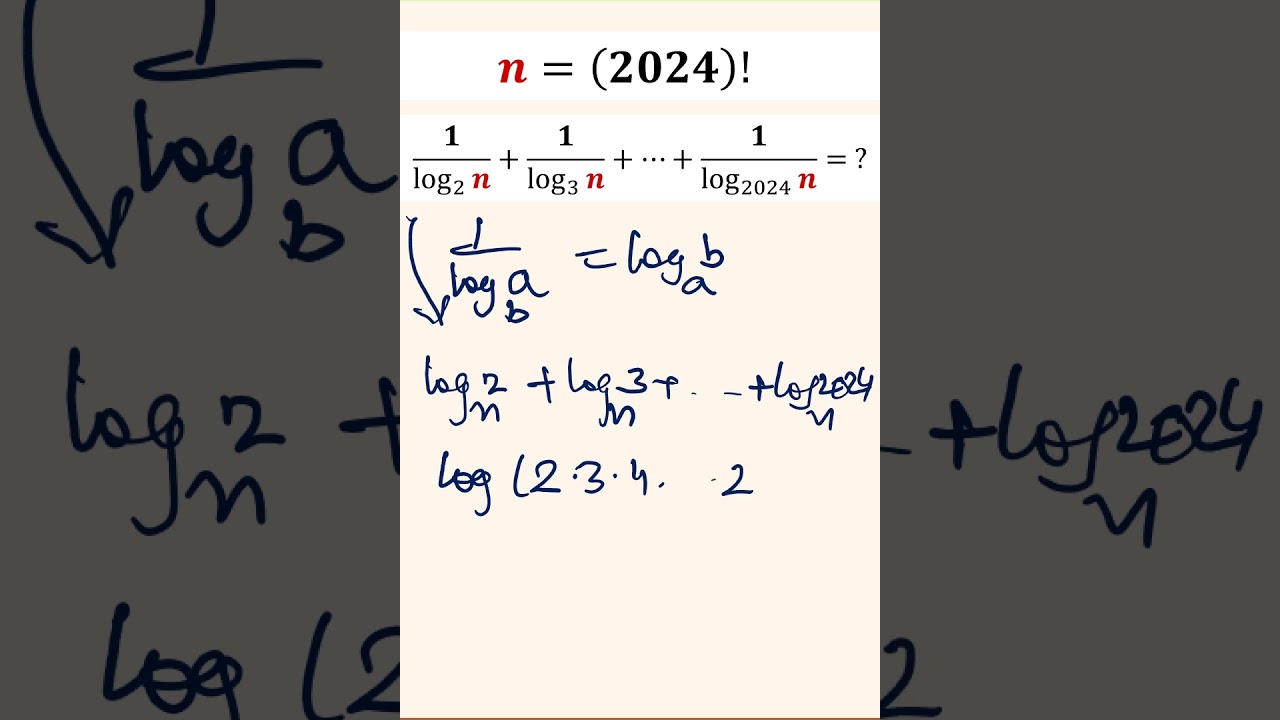 n = (2024)!
1/log₂ n + 1/log₃ n + ⋯ + 1/log₂₀₂₄ n = ?
1/log_b a = log_a b
log_n 2 + log_n 3 + . . – + log_n 2024
log (2·3·4. .2